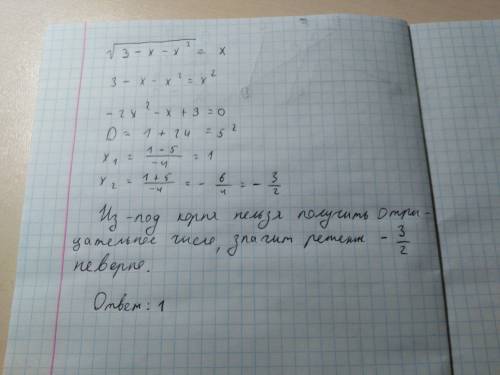 √(3 - x - x²) = x
3 - x - x² = x²
-2x² - x + 3 = 0
D = 1 + 24 = 5²
x₁ = (1-5)/-4 = 1
x₂ = (1+5)/-4 = - 6/4 = - 3/2
Из-под корня нельзя получить отри-
цательное число, значит решение - 3/2
неверно.
Ответ: 1